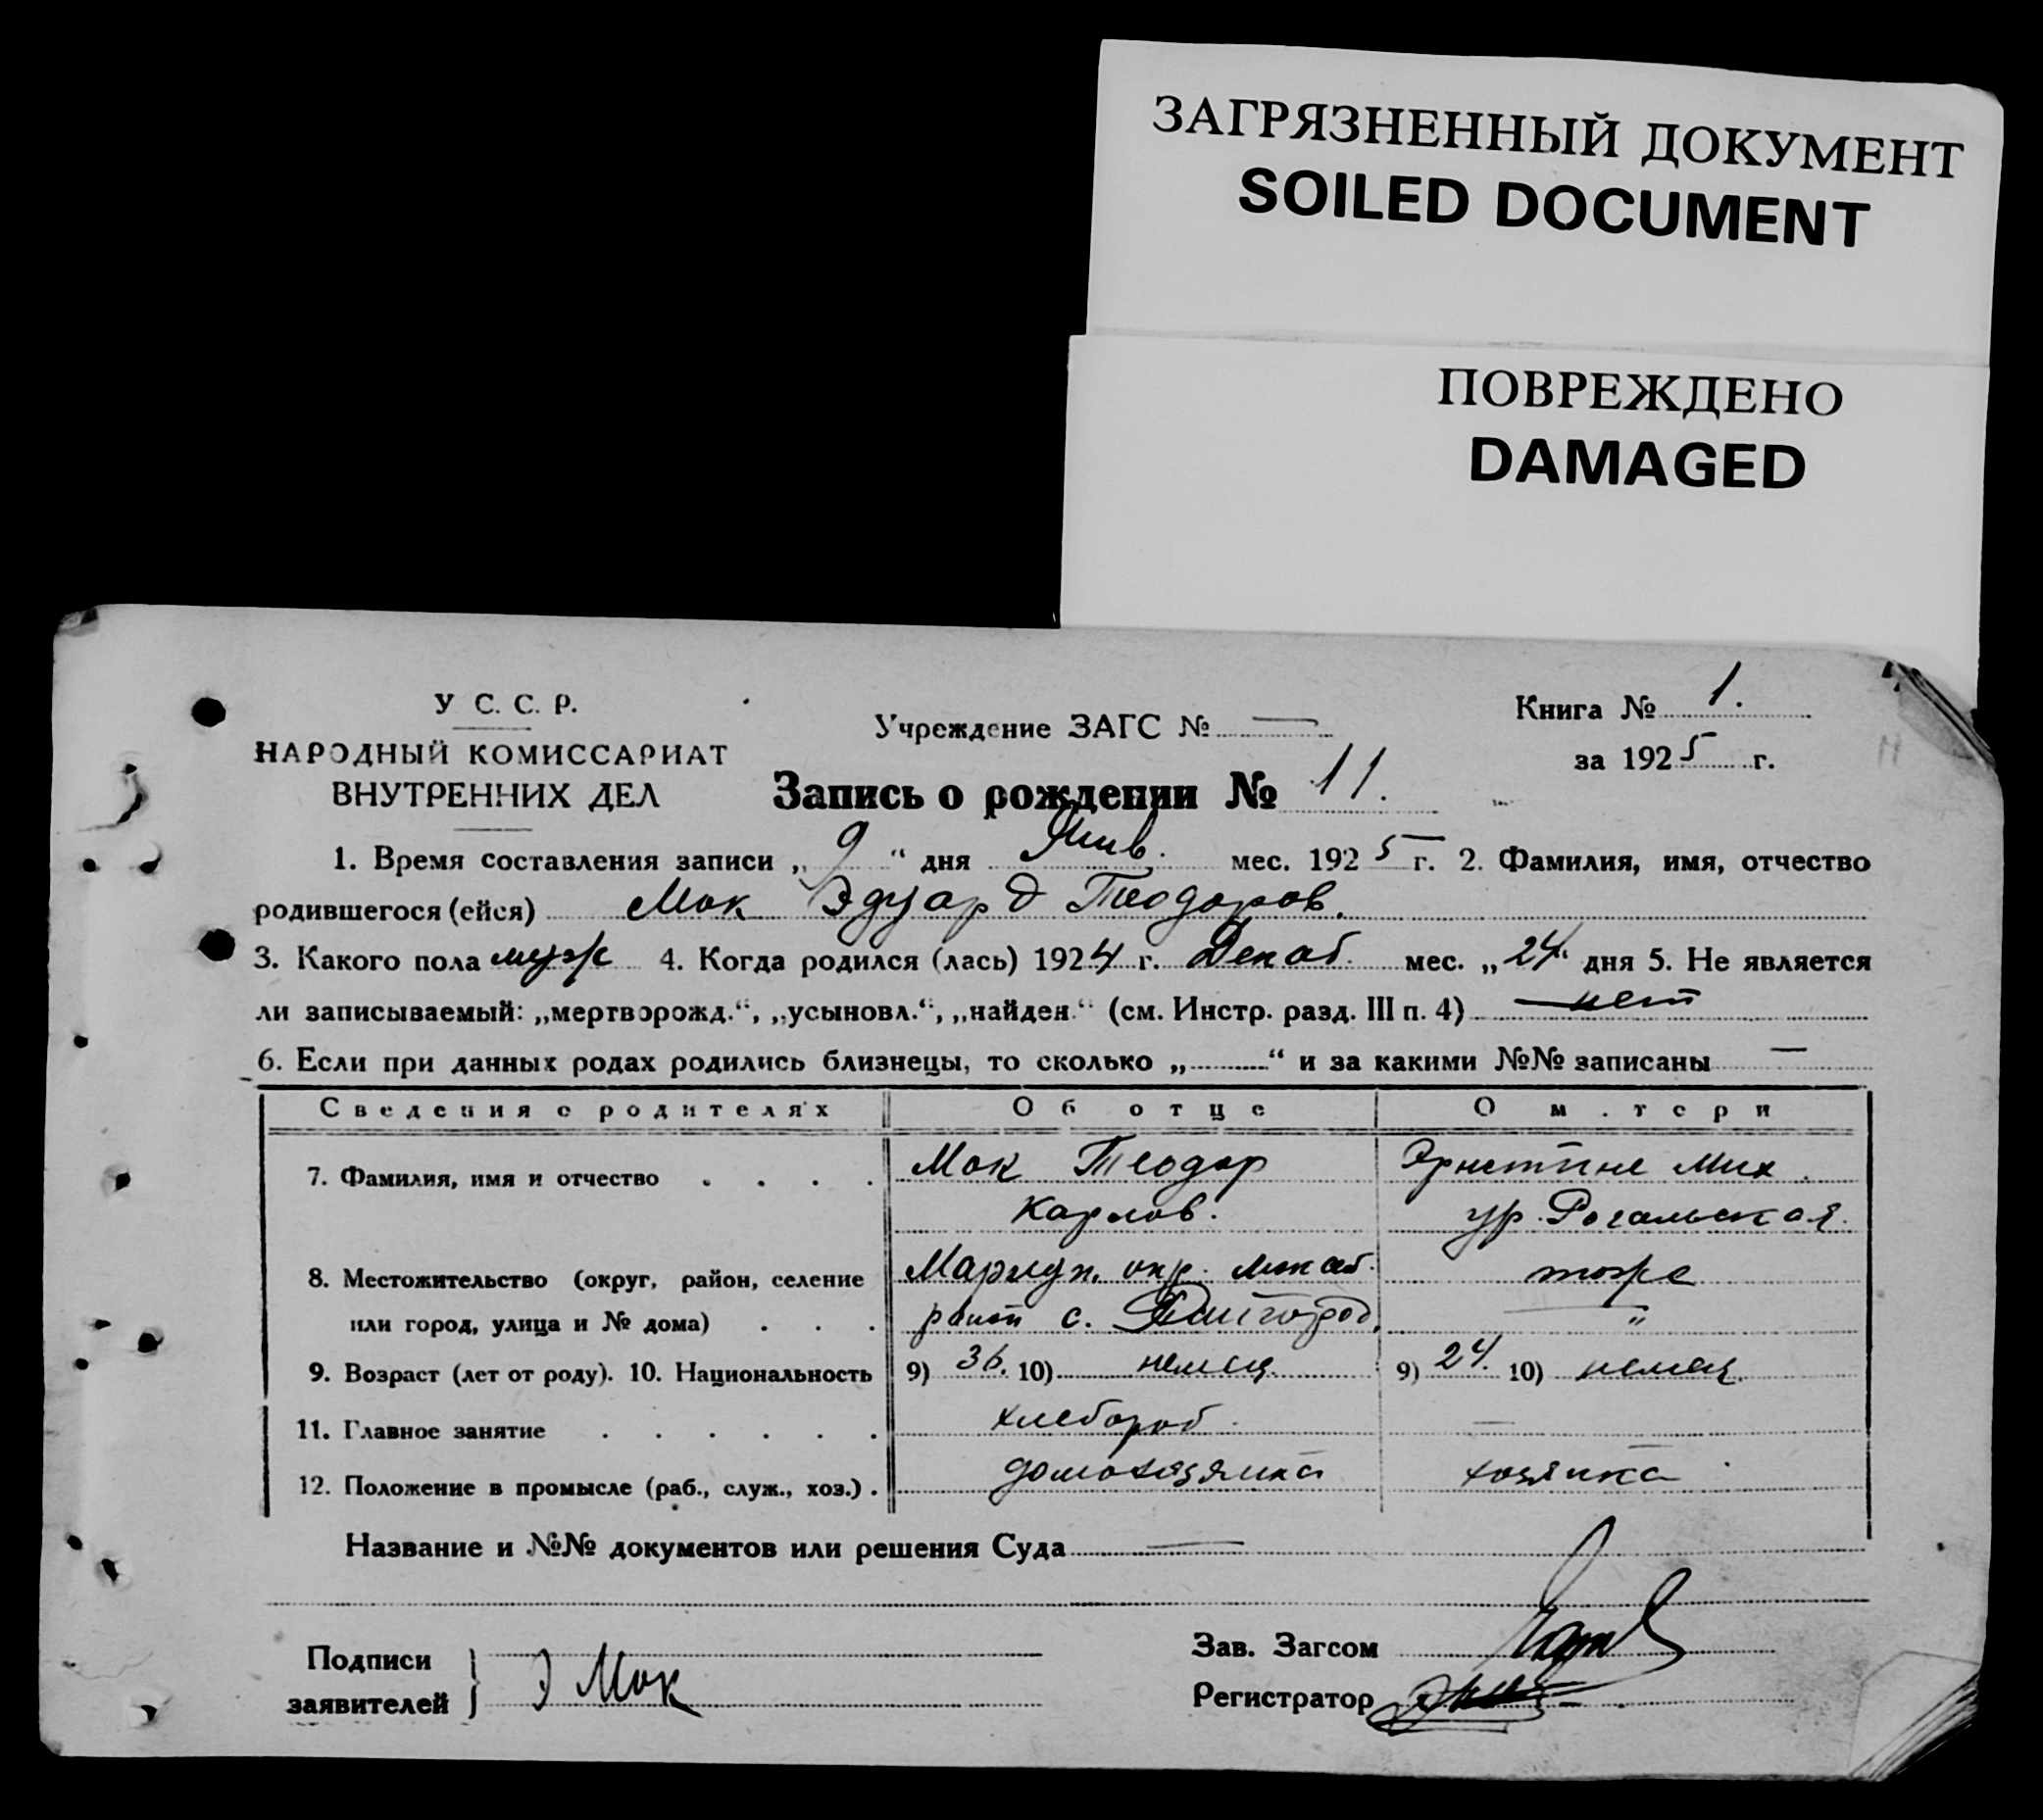 ЗАГРЯЗНЕННЫЙ ДОКУМЕНТ
SOILED DOCUMENT
ПОВРЕЖДЕНО
DAMAGED
У С. С. Р.
НАРОДНЫЙ КОМИССАРИАТ
ВНУТРЕННИХ ДЕЛ
Учреждение ЗАГС № —
Книга № 1.
за 1925 г.
Запись о рождении № 11.
1. Время составления записи „ 9 “ дня Янв. мес. 1925 г. 2. Фамилия, имя, отчество
родившегося (ейся) Мок Эдуард Теодоров.
3. Какого пола муж 4. Когда родился (лась) 1924 г. Декаб. мес. „24“ дня 5. Не является
ли записываемый: „мертворожд.“, „усыновл.“, „найден.“ (см. Инстр. разд. III п. 4) нет
6. Если при данных родах родились близнецы, то сколько „..........“ и за какими №№ записаны —
Сведения о родителях Об отце О м.тери
7. Фамилия, имя и отчество . . . . Мок Теодор Эрнстине Мих.
Карлов. ур. Рогальская.
8. Местожительство (округ, район, селение Мариуп. окр. тоже
или город, улица и № дома) . . . с. "
9. Возраст (лет от роду). 10. Национальность 9) 36. 10) немец 9) 24. 10) немец.
11. Главное занятие . . . . . . хлебороб. —
12. Положение в промысле (раб., служ., хоз.) . домохозяика хозяика
Название и №№ документов или решения Суда —
Подписи
заявителей } Э Мок
Зав. Загсом
Регистратор